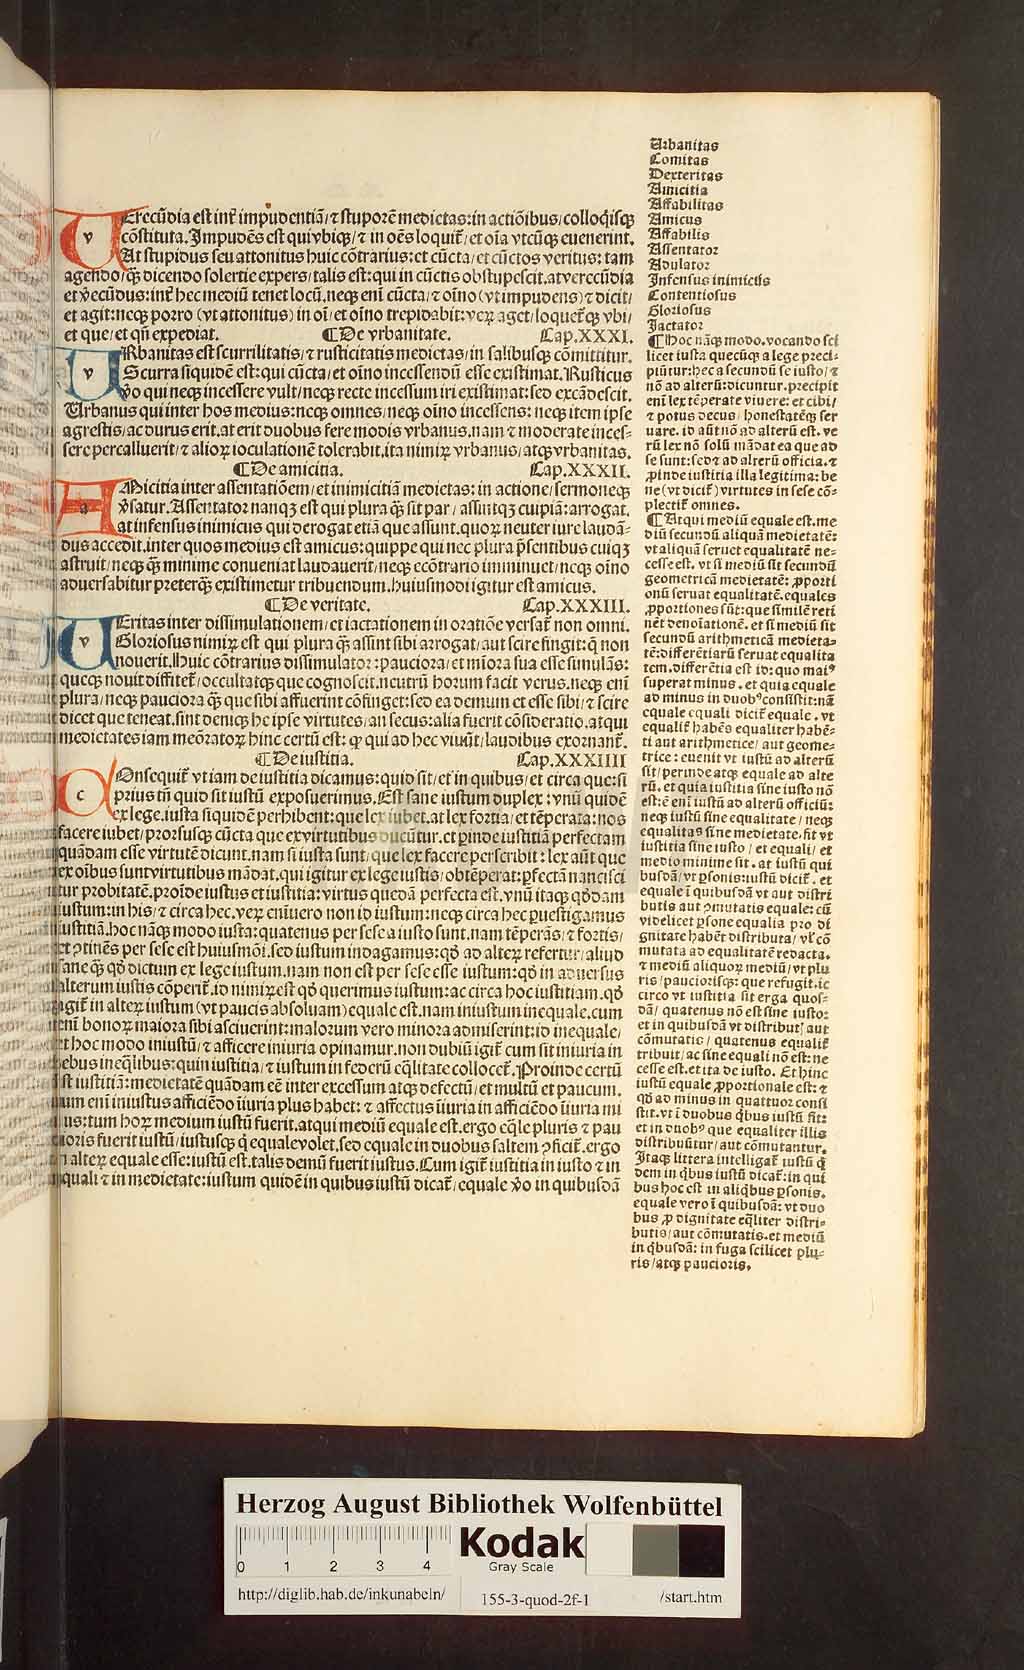 VErecūdia est int̄ impudentiā/⁊ stuporē medietas:in actiōibus/colloq̇isqꝫ
cōstituta.Impudēs est qui vbiqꝫ/⁊ in oēs loquit̄/et oīa vtcūqꝫ euenerint.
At stupidus seu attonitus huic cōtrarius:et cūcta/et cūctos veritus: tam
agendo/qꝫ̄ dicendo solertie expers/talis est:qui in cūctis obstupescit.at verecūdia
et v̄ecūdus:int̄ hec mediū tenet locū.neqꝫ enī cūcta/⁊ oīno (vt impudens) ⁊ dicit/
et agit:neqꝫ porro (vt attonitus) in oī/et oīno trepidabit:veꝝ aget/loquet̄qꝫ vbi/
et que/et qñ expediat. ¶De vrbanitate. Cap.XXXI.
VRbanitas est scurrilitatis/⁊ rusticitatis medietas/in salibusqꝫ cōmittitur.
Scurra siquidē est:qui cūcta/et oīno incessendū esse existimat.Rusticus
v̄o qui neqꝫ incessere vult/neqꝫ recte incessum iri existimat:sed excādescit.
Urbanus qui inter hos medius:neqꝫ omnes/neqꝫ oīno incessens: neqꝫ item ipse
agrestis/ac durus erit.at erit duobus fere modis vrbanus.nam ⁊ moderate inces-
sere percalluerit/⁊ alioꝝ ioculationē tolerabit.ita nimiꝝ vrbanus/atqꝫ vrbanitas.
¶De amicitia. Cap.XXXII.
AMicitia inter assentatiōem/et inimicitiā medietas: in actione/sermoneqꝫ
v̄satur.Assentator nanqꝫ est qui plura qꝫ̄ sit par/assuitqꝫ cuipiā:arrogat.
at infensus inimicus qui derogat etiā que assunt.quoꝝ neuter iure laudā-
dus accedit.inter quos medius est amicus:quippe qui nec plura p̄sentibus cuiqꝫ
astruit/neqꝫ qꝫ̄ minime conueniat laudauerit/neqꝫ ecōtrario imminuet/neqꝫ oīno
aduersabitur preterqꝫ̄ existimetur tribuendum.huiusmodi igitur est amicus.
¶De veritate. Cap.XXXIII.
VEritas inter dissimulationem/et iactationem in oratiōe versat̄ non omni.
Gloriosus nimiꝝ est qui plura qꝫ̄ assint sibi arrogat/aut scire fingit:q̄ non
nouerit.Huic cōtrarius dissimulator:pauciora/et mīora sua esse simulās:
queqꝫ nouit diffitet̄/occultatqꝫ que cognoscit.neutrū horum facit verus.neqꝫ enī
plura/neqꝫ pauciora qꝫ̄ que sibi affuerint cōfinget:sed ea demum et esse sibi/⁊ scire
dicet que teneat.sint deniqꝫ he ipse virtutes/an secus:alia fuerit cōsideratio.atqui
medietates iam meōratoꝝ hinc certū est: ꝙ qui ad hec viuūt/laudibus exornant̄.
¶De iustitia. Cap.XXXIIII
COnsequit̄ vt iam de iustitia dicamus:quid sit/et in quibus/et circa que:si
prius tñ quid sit iustū exposuerimus.Est sane iustum duplex:vnū quidē
ex lege.iusta siquidē perhibent:que lex iubet.at lex fortia/et tēperata:nos
facere iubet/prorsusqꝫ cūcta que ex virtutibus ducūtur.et ꝓinde iustitiā perfectam
quādam esse virtutē dicunt.nam si iusta sunt/que lex facere perscribit:lex aūt que
ex oībus sunt virtutibus mādat.qui igitur ex lege iustis/obtēperat:ꝑfectā nancisci
tur probitatē.proīde iustus et iustitia:virtus quedā perfecta est.vnū itaqꝫ qd̄dam
iustum:in his/⁊ circa hec.veꝝ enīuero non id iustum:neqꝫ circa hec ꝑuestigamus
iustitiā.hoc nāqꝫ modo iusta:quatenus per sese a iusto sunt.nam tēperās/⁊ fortis/
et ꝯtinēs per sese est huiusmōi.sed iustum indagamus:qd̄ ad alteꝝ refertur/aliud
sane qꝫ̄ qd̄ dictum ex lege iustum.nam non est per sese esse iustum:qd̄ in aduersus
alterum iustis cōperit̄.id nimiꝝ est qd̄ querimus iustum:ac circa hoc iustitiam.qd̄
igit̄ in alteꝝ iustum (vt paucis absoluam) equale est.nam iniustum inequale.cum
enī bonoꝝ maiora sibi asciuerint:malorum vero minora admiserint:id inequale/
et hoc modo iniustū/⁊ afficere iniuria opinamur.non dubiū igit̄ cum sit iniuria in
rebus ineq̄libus:quin iustitia/⁊ iustum in federū eq̄litate collocet̄.Proinde certū
est iustitiā:medietatē quādam eē inter excessum atqꝫ defectū/et multū et paucum.
nam enī iniustus afficiēdo īiuria plus habet: ⁊ affectus īiuria in afficiēdo īiuria mi
nus:tum hoꝝ medium iustū fuerit.atqui mediū equale est.ergo eq̄le pluris ⁊ pau
cioris fuerit iustū/iustusqꝫ q̇ equale volet.sed equale in duobus saltem ꝯficit̄.ergo
in alteꝝ equale esse:iustū est.talis demū fuerit iustus.Cum igit̄ iustitia in iusto ⁊ in
equali ⁊ in medietate:iustum quidē in quibus iustū dicat̄/equale v̄o in quibusdā
Urbanitas
Comitas
Dexteritas
Amicitia
Affabilitas
Amicus
Affabilis
Assentator
Adulator
Infensus inimicus
Contentiosus
Gloriosus
Jactator
¶Hoc nāqꝫ modo.vocando sci
licet iusta quecūqꝫ a lege preci-
piūtur:hec a secundū se iusto/⁊
nō ad alterū:dicuntur.precipit
enī lex tēperate viuere: et cibi/
⁊ potus decus/honestatēqꝫ ser
uare. id aūt nō ad alterū est. ve
rū lex nō solū mādat ea que ad
se sunt:sed ⁊ ad alterū officia.⁊
ꝓinde iustitia illa legitima: be
ne (vt dicit̄) virtutes in sese cō-
plectit̄ omnes.
¶Atqui mediū equale est.me
diū secundū aliquā medietatē:
vt aliquā seruet equalitatē ne-
cesse est. vt si mediū sit secundū
geometricā medietatē: ꝓporti
onū seruat equalitatē. equales
ꝓportiones sūt:que similē reti
nēt denoīationē. et si mediū sit
secundū arithmeticā medieta-
tē:differētiarū seruat equalita
tem. differētia est id: quo maiꝰ
superat minus. et quia equale
ad minus in duobꝰ consistit:nā
equale equali dicit̄ equale. vt
equalit̄ habēs equaliter habē-
ti aut arithmetice/ aut geome-
trice: euenit vt iustū ad alterū
sit/perinde atqꝫ equale ad alte
rū. et quia iustitia sine iusto nō
est:ē enī iustū ad alterū officiū:
neqꝫ iustū sine equalitate / neqꝫ
equalitas sine medietate.fit vt
iustitia sine iusto / et equali/ et
medio minime sit. at iustū qui
busdā/vt ꝑsonis:iustū dicit̄. et
equale ī quibusdā vt aut distri
butis aut ꝯmutatis equale: cū
videlicet ꝑsone equalia pro di
gnitate habēt distributa/ vl̄ cō
mutata ad equalitatē redacta.
⁊ mediū aliquoꝝ mediū/vt plu
ris/pauciorisqꝫ: que refugit.ic
circo vt iustitia sit erga quos-
dā/ quatenus nō est sine iusto:
et in quibusdā vt distributꝭ aut
cōmutatis/ quatenus equalit̄
tribuit/ac sine equali nō est:ne
cesse est.et ita de iusto. Et hinc
iustū equale ꝓportionale est:⁊
qd̄ ad minus in quattuor consi
stit.vt ī duobus q̇bus iustū fit:
et in duobꝰ que equaliter illis
distribuūtur/aut cōmutantur.
Itaqꝫ littera intelligat̄ iustū q̇
dem in q̇bus iustū dicat̄:in qui
bus hoc est in aliq̇bus ꝑsonis.
equale vero ī quibusdā: vt duo
bus ꝓ dignitate eq̄liter distri-
butis/aut cōmutatis.et mediū
in q̇busdā: in fuga scilicet plu-
ris/atqꝫ paucioris.
Herzog August Bibliothek Wolfenbüttel
0 1 2 3 4
Kodak
Gray Scale
http://diglib.hab.de/inkunabeln/ 155-3-quod-2f-1 /start.htm